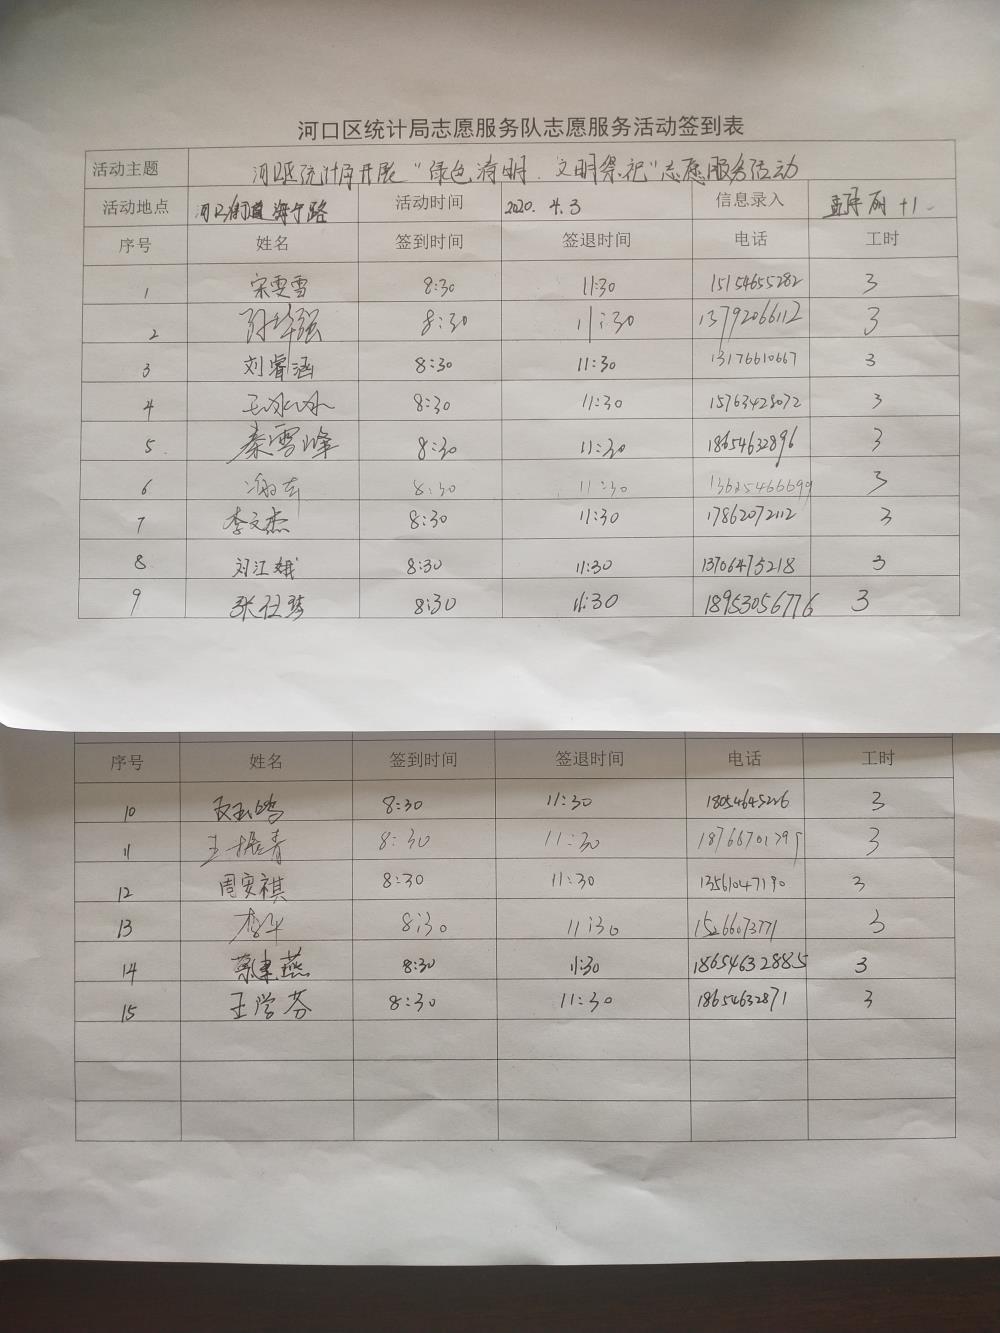 河口区统计局志愿服务队志愿服务活动签到表
活动主题 河口区统计局开展“绿色清明.文明祭祀”志愿服务活动
活动地点 河口街道海宁路 活动时间 2020.4.3 信息录入 丽+1
序号 姓名 签到时间 签退时间 电话 工时
1 宋雯雪 8:30 11:30 15154655282 3
2 8:30 11:30 13792066112 3
3 刘睿涵 8:30 11:30 13176610667 3
4 王冰冰 8:30 11:30 15763428072 3
5 秦雪峰 8:30 11:30 18654632896 3
6 8:30 11:30 13625466699 3
7 李文杰 8:30 11:30 17862072112 3
8 刘江娥 8:30 11:30 13706475218 3
9 8:30 11:30 18953056776 3
序号 姓名 签到时间 签退时间 电话 工时
10 8:30 11:30 18054645226 3
11 王振青 8:30 11:30 18766701799 3
12 周安祺 8:30 11:30 13561047190 3
13 李华 8:30 11:30 15266073771 3
14 蔡建燕 8:30 11:30 18654632885 3
15 王学芬 8:30 11:30 18654632871 3